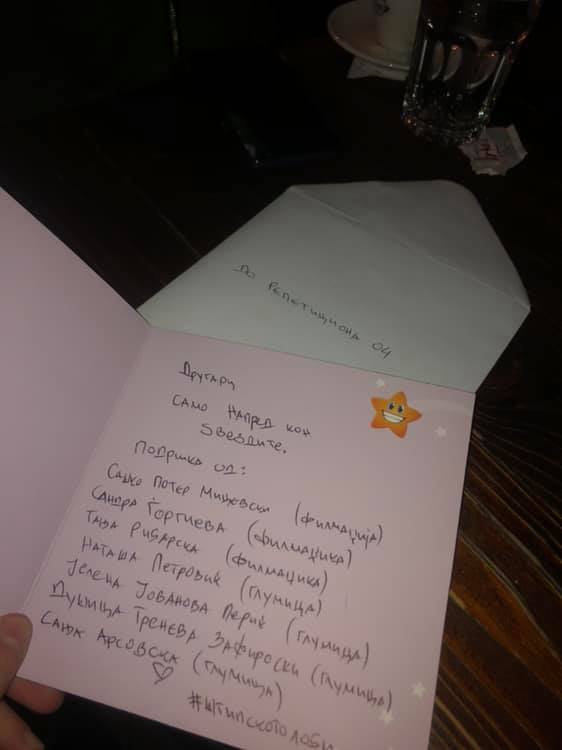 До Репетициона 04
Другари
само напред кон
ѕвездите.
Подршка од:
Сашко Потер Мицевски (филмаџија)
Сандра Ѓоргиева (филмаџика)
Тања Рибарска (филмаџика)
Наташа Петровиќ (глумица)
Јелена Јованова Периќ (глумица)
Душица Тренева Зафироски (глумица)
Сања Арсовска (глумица)
#штипскотолоби